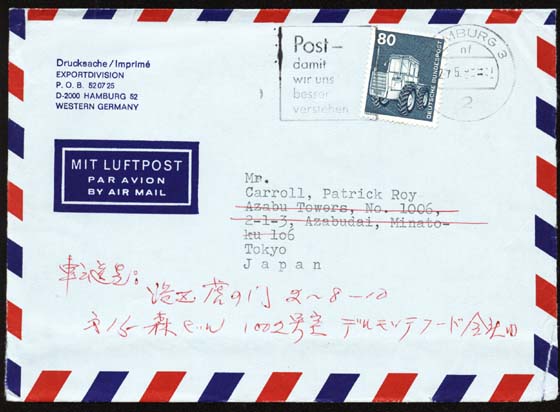 Drucksache/Imprimé
EXPORTDIVISION
P. O. B. 52 07 25
D-2000 HAMBURG 52
WESTERN GERMANY
Post-
damit
wir uns
besser
verstehen
80
DEUTSCHE BUNDESPOST
HAMBURG 3
nf
2
MIT LUFTPOST
PAR AVION
BY AIR MAIL
Mr.
Carroll, Patrick Roy
Azabu Towers, No. 1006,
2-1-3, Azabudai, Minato-
ku 106
Tokyo
Japan
転送先:
港区虎の門 2-8-10
第15森ビル 1002号室 デルモンテフード会社内